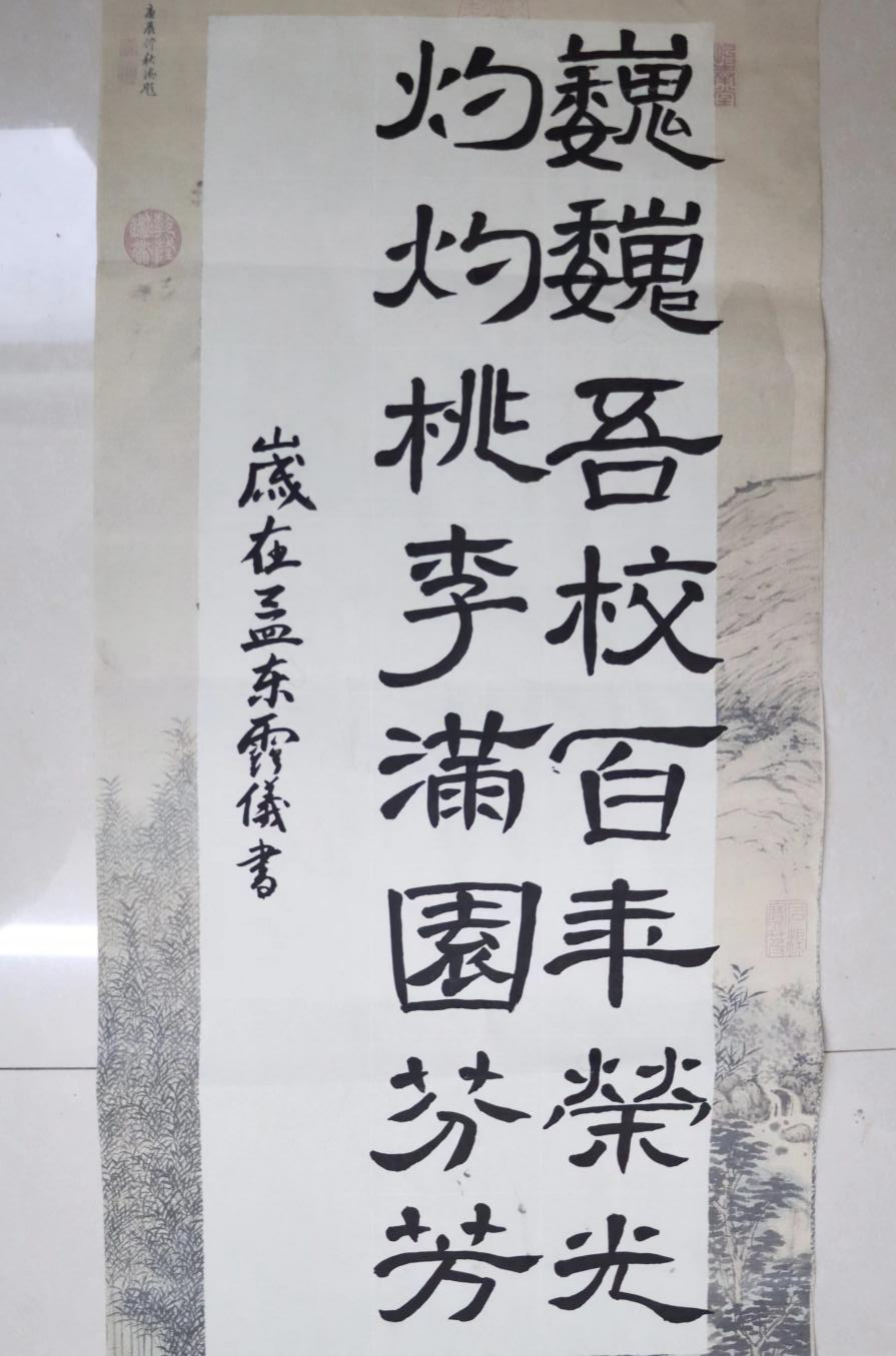 巍巍吾校百年榮光
灼灼桃李滿園芬芳
歲在孟东儀書